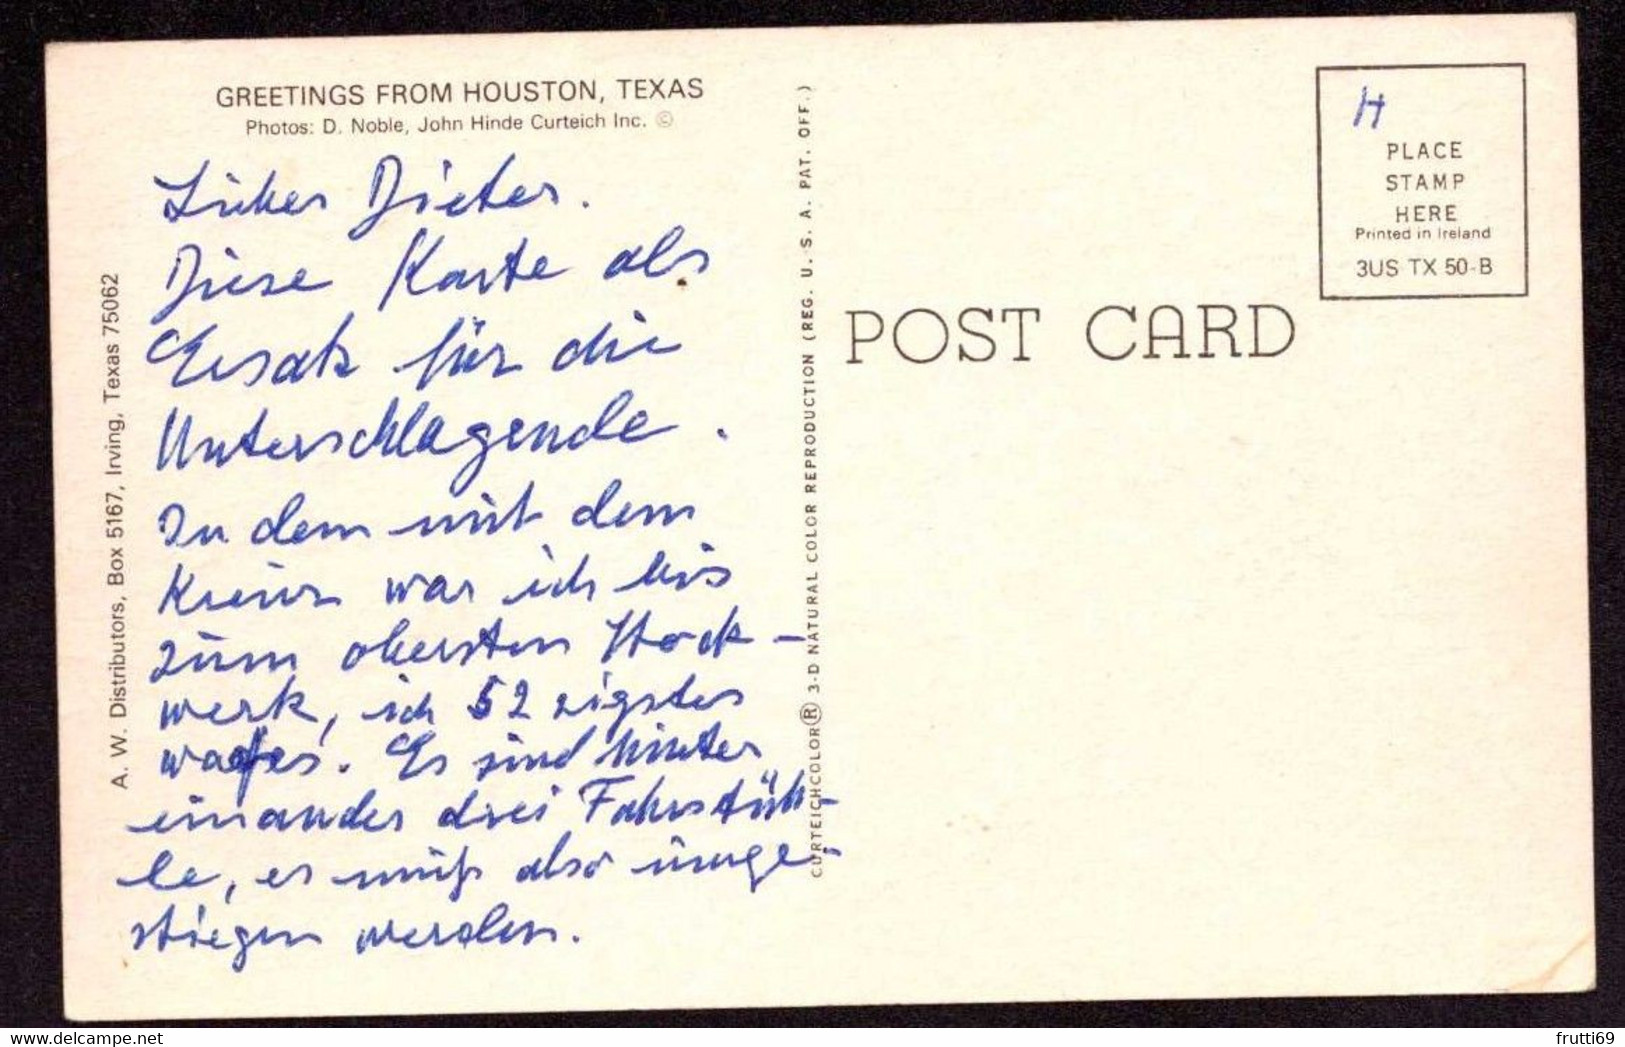 GREETINGS FROM HOUSTON, TEXAS
Photos: D. Noble, John Hinde Curteich Inc. ©
Lieber Dieter.
Diese Karte als
Ersatz für die
Unterschlagende.
In dem mit dem
Kreuz war ich bis
zum obersten Stock-
werk, ich 52 zigstes
Es sind hinter
einander drei Fahrstüh-
le, es muß also umge-
stiegen werden.
A. W. Distributors, Box 5167, Irving, Texas 75062
CURTEICHCOLOR® 3-D NATURAL COLOR REPRODUCTION (REG. U. S. A. PAT. OFF.)
POST CARD
H
PLACE
STAMP
HERE
Printed in Ireland
3US TX 50-B
frutti69
www.delcampe.net